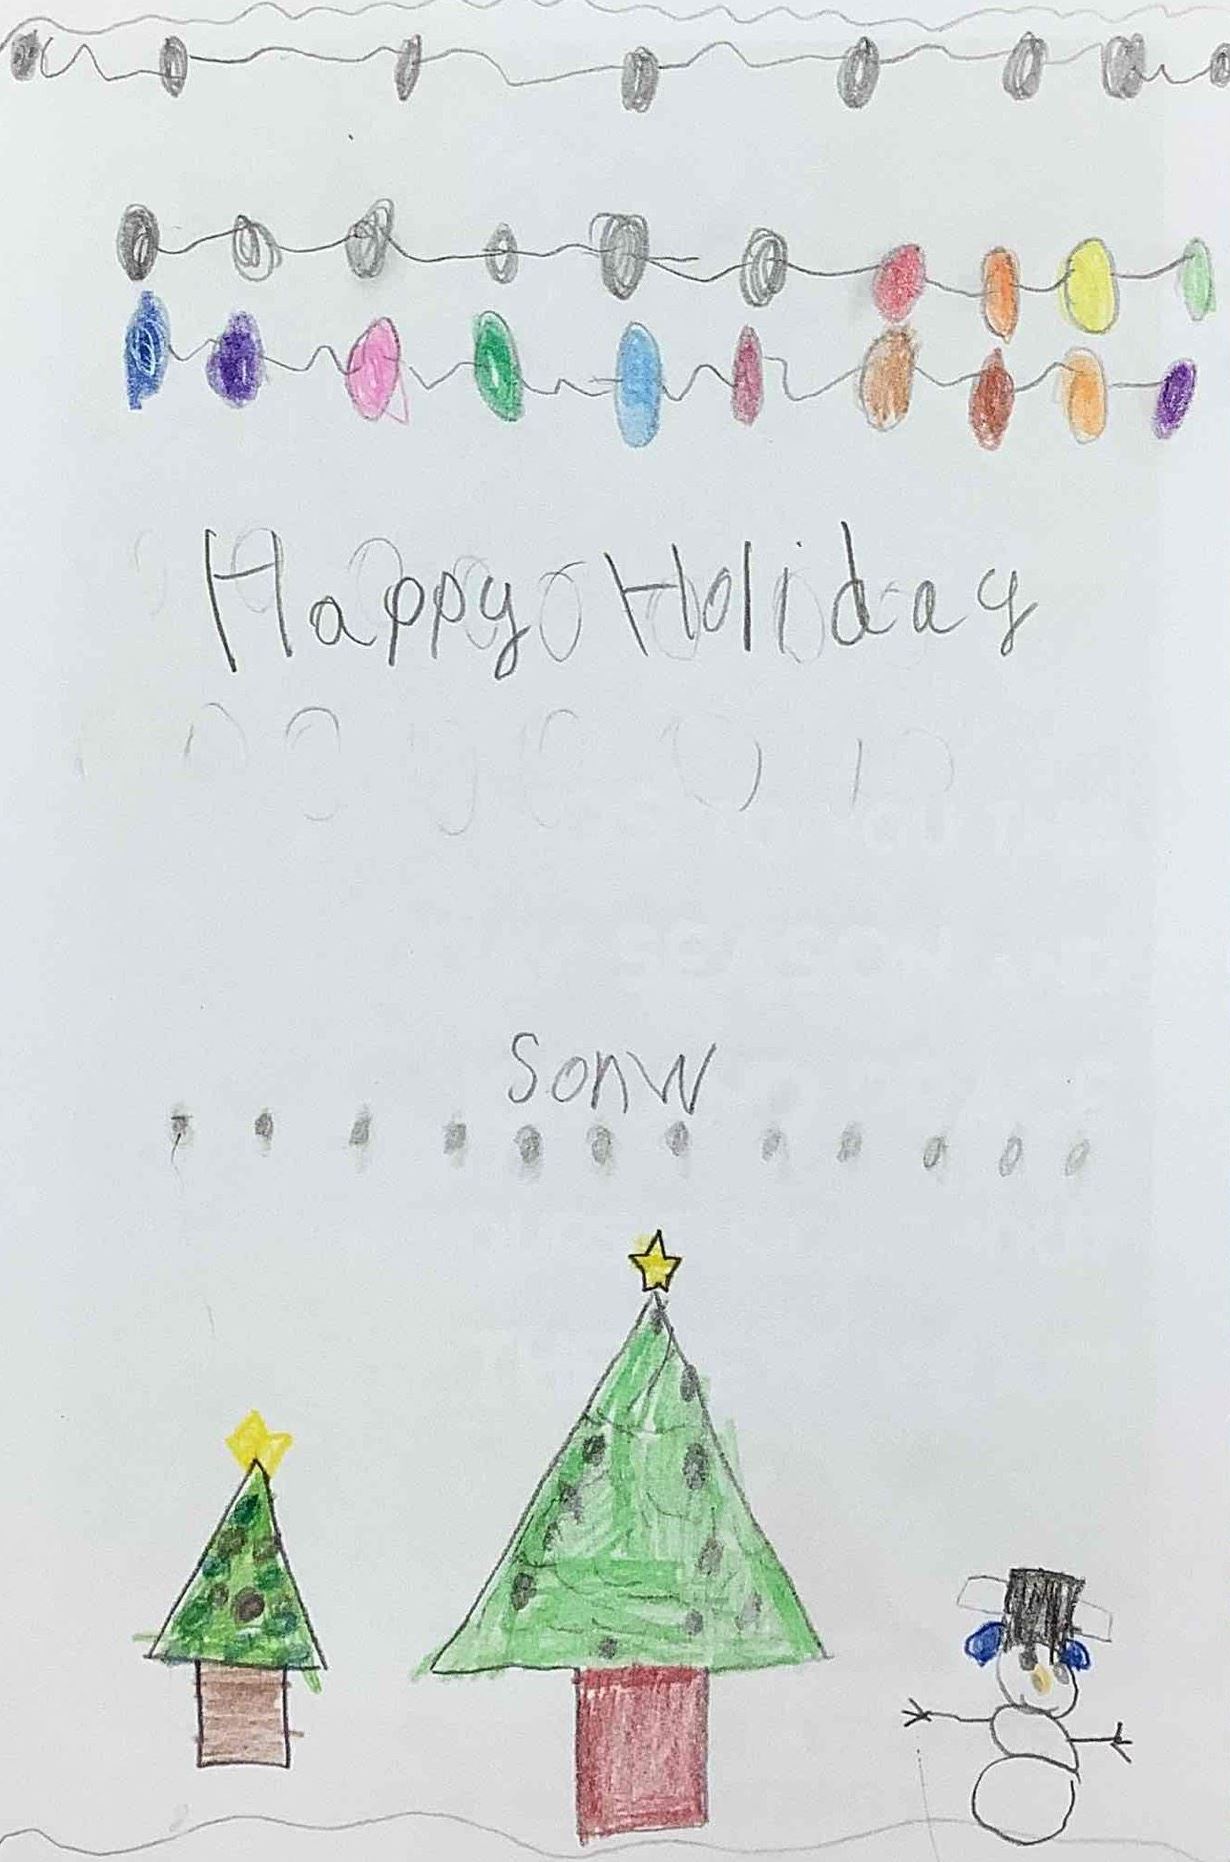 Happy Holiday
Sonw